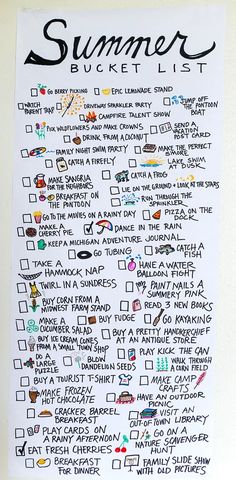 Summer
BUCKET LIST
GO BERRY PICKING EPIC LEMONADE STAND
WATCH PARENT TRAP DRIVEWAY SPARKLER PARTY JUMP OFF THE PONTOON BOAT
CAMPFIRE TALENT SHOW
PICK WILDFLOWERS AND MAKE CROWNS SEND A VACATION POST CARD
DRINK FROM A COCONUT
FAMILY NIGHT SWIM PARTY MAKE THE PERFECT SMORE
CATCH A FIREFLY LAKE SWIM AT DUSK
MAKE SANGRIA FOR THE NEIGHBORS CATCH A FROG
LIE ON THE GROUND & LOOK AT THE STARS
BREAKFAST ON THE PONTOON RUN THROUGH THE SPRINKLER
GO TO THE MOVIES ON A RAINY DAY PIZZA ON THE DOCK
MAKE A CHERRY PIE DANCE IN THE RAIN
KEEP A MICHIGAN ADVENTURE JOURNAL
GO TUBING CATCH A FISH
TAKE A HAMMOCK NAP HAVE A WATER BALLOON FIGHT
TWIRL IN A SUNDRESS PAINT NAILS A SUMMERY PINK
BUY CORN FROM A MIDWEST FARM STAND READ 3 NEW BOOKS
MAKE A CUCUMBER SALAD BUY FUDGE GO KAYAKING
BUY ICE CREAM CONES FROM A SMALL TOWN SHOP BUY A PRETTY HANDKERCHIEF AT AN ANTIQUE STORE
DO A LARGE PUZZLE BLOW DANDELION SEEDS PLAY KICK THE CAN
WALK THROUGH A CORN FIELD
BUY A TOURIST T-SHIRT MAKE CAMP CRAFTS
MAKE FROZEN HOT CHOCOLATE HAVE AN OUTDOOR PICNIC
CRACKER BARREL BREAKFAST VISIT AN OUT OF TOWN LIBRARY
PLAY CARDS ON A RAINY AFTERNOON GO ON A NATURE SCAVENGER HUNT
EAT FRESH CHERRIES
BREAKFAST FOR DINNER FAMILY SLIDE SHOW WITH OLD PICTURES